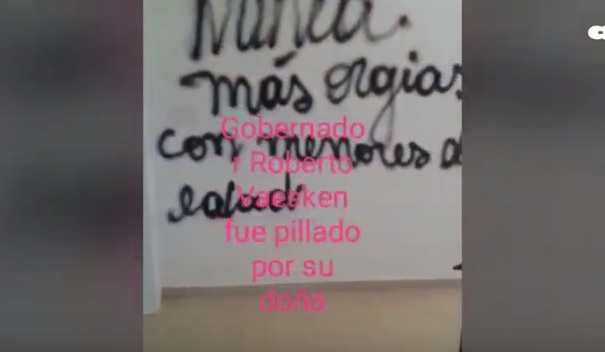 Nunca.
más orgias
con menores
salud
Gobernado
r Roberto
Vaesken
fue pillado
por su
doña